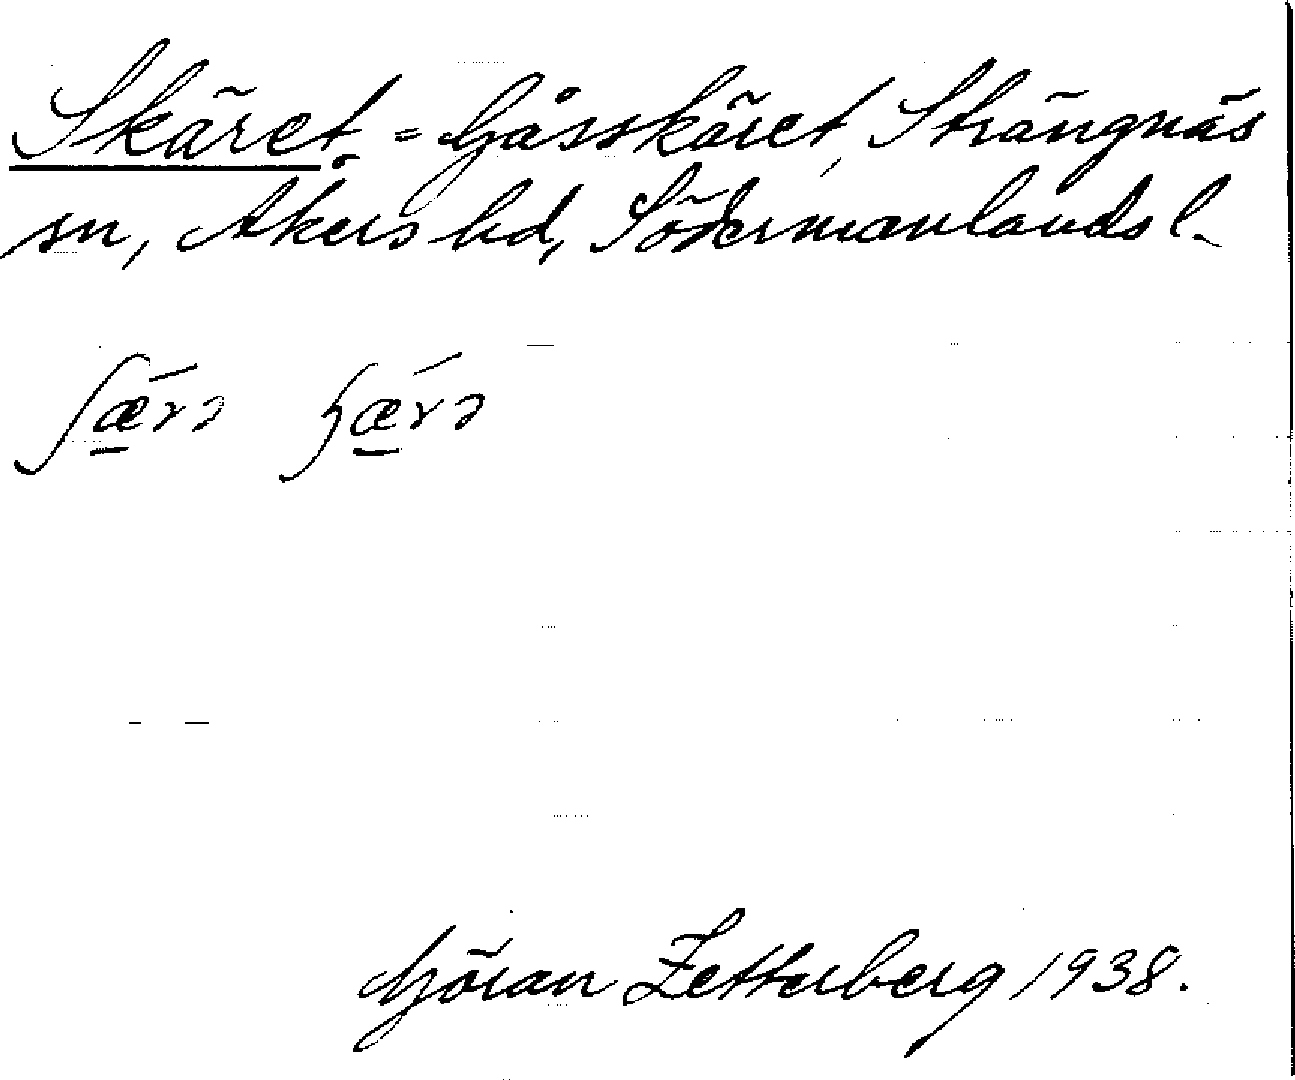 Skäret = Gåsskäret, Strängnäs
sn, Åkers hd, Södermanlands l.
Göran Zetterberg 1938.